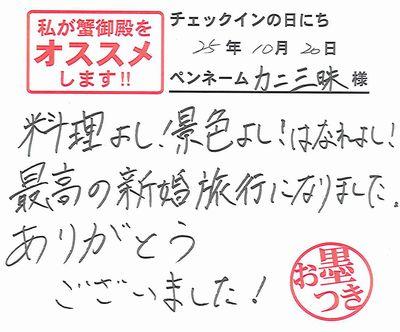 私が蟹御殿を
オススメ
します!!
チェックインの日にち
25年10月20日
ペンネーム カニ三昧 様
料理よし!景色よし!はなれよし!
最高の新婚旅行になりました。
ありがとう
ございました!
お墨つき